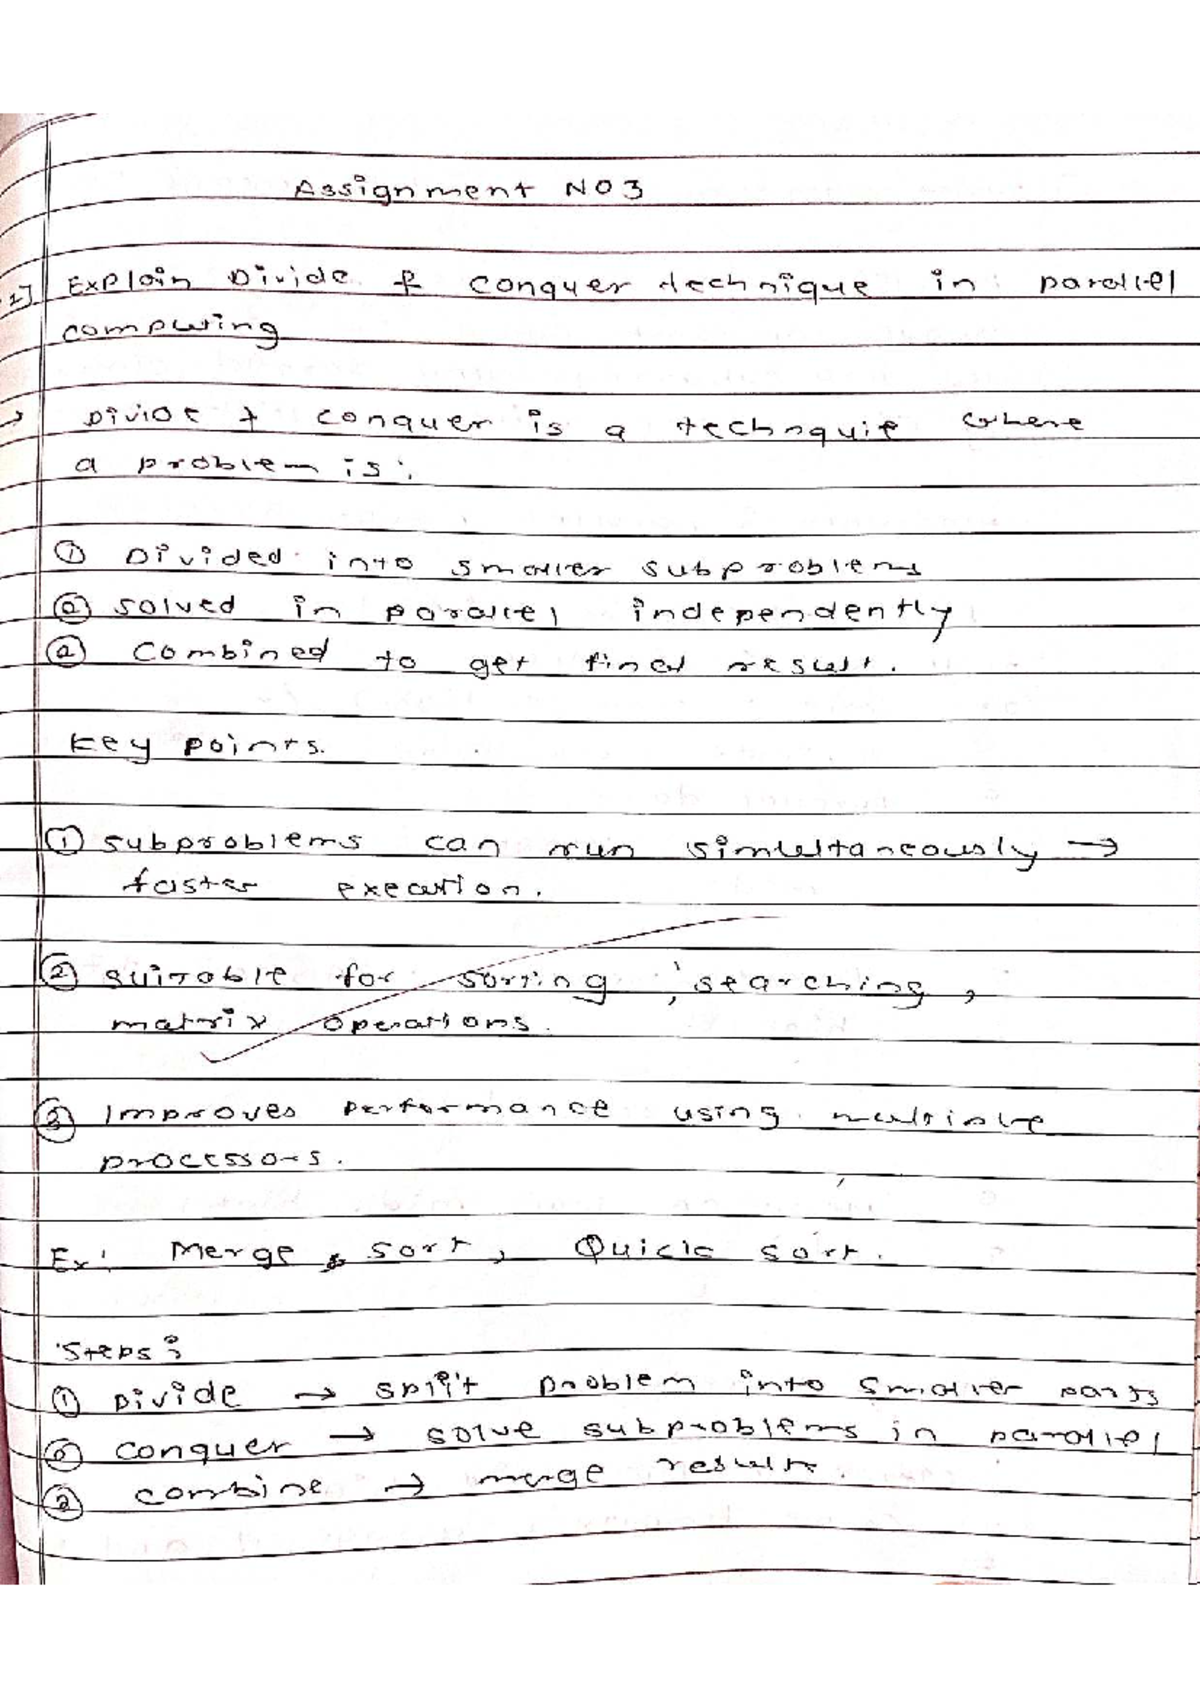 Assignment NO 3
1] Explain Divide & conquer technique in parallel
computing
Divide & conquer is a technquie where
a problem is:
① Divided into smaller subproblems
② solved in parallel independently
② Combined to get final result.
Key points.
① subproblems can run simultaneously →
faster execution.
② suitable for sorting, searching,
matrix operations.
③ Improves performance using multiple
processors.
Ex: Merge sort, Quick sort.
Steps:
① Divide → split problem into smaller parts
② conquer → solve subproblems in parallel
③ combine → merge results.